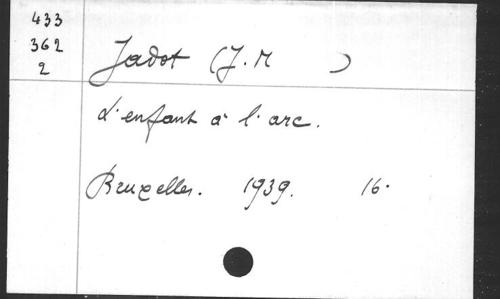 433
362
2
Jadot (J. M )
L'enfant à l'arc.
Bruxelles. 1939. 16.